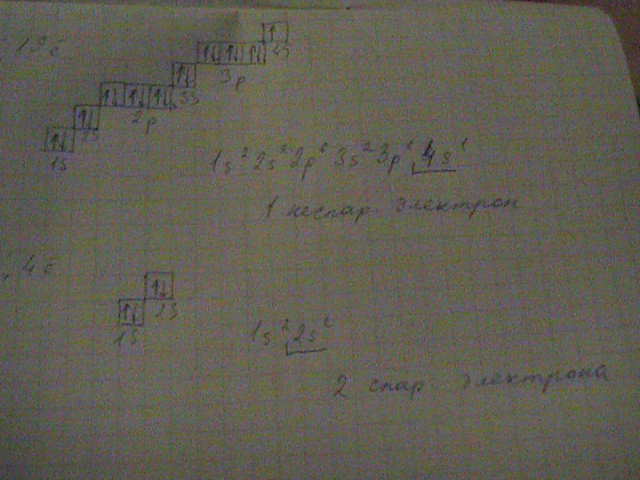 19 ē
4s
3p
3s
2p
2s
1s
1s² 2s² 2p⁶ 3s² 3p⁶ 4s¹
1 неспар. электрон
, 4 ē
2s
1s
1s² 2s²
2 спар электрона